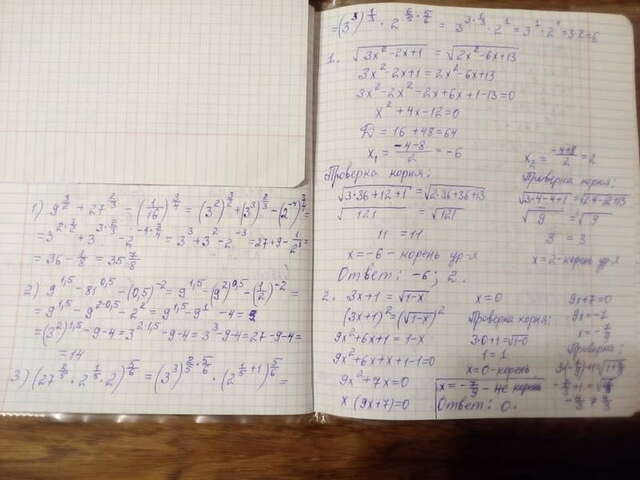 1) 9^(3/2) + 27^(2/3) - (1/16)^(3/4) = (3^2)^(3/2) + (3^3)^(2/3) - (2^-4)^(3/4) =
= 3^(2·3/2) + 3^(3·2/3) - 2^(-4·3/4) = 3^3 + 3^2 - 2^-3 = 27 + 9 - 1/2^3 =
= 36 - 1/8 = 35 7/8
2) 9^1,5 - 81^0,5 - (0,5)^-2 = 9^1,5 - (9^2)^0,5 - (1/2)^-2 =
= 9^1,5 - 9^(2·0,5) - 2^2 = 9^1,5 - 9^1 - 4 =
= (3^2)^1,5 - 9 - 4 = 3^(2·1,5) - 9 - 4 = 3^3 - 9 - 4 = 27 - 9 - 4 =
= 14
= 3^(3·1/3) · 2^1 = 3^1 · 2^1 = 3·2 = 6
1. √(3x^2 - 2x + 1) = √(2x^2 - 6x + 13)
3x^2 - 2x + 1 = 2x^2 - 6x + 13
3x^2 - 2x^2 - 2x + 6x + 1 - 13 = 0
x^2 + 4x - 12 = 0
D = 16 + 48 = 64
x1 = (-4-8)/2 = -6
Проверка корня:
√(3·36 + 12 + 1) = √(2·36 + 36 + 13)
√121 = √121
11 = 11
x = -6 - корень ур-я
x2 = (-4+8)/2 = 2
Проверка корня:
√(3·4 - 4 + 1) = √(2·4 - 12 + 13)
√9 = √9
3 = 3
x = 2 - корень ур-я
Ответ: -6; 2.
2. 3x + 1 = √(1-x)
(3x + 1)^2 = (√(1-x))^2
9x^2 + 6x + 1 = 1 - x
9x^2 + 6x + x + 1 - 1 = 0
9x^2 + 7x = 0
x (9x + 7) = 0
x = 0
Проверка корня:
3·0 + 1 = √(1-0)
1 = 1
x = 0 - корень
x = -7/9 - не корень
Ответ: 0.
9x + 7 = 0
9x = -7
x = -7/9
Проверка: